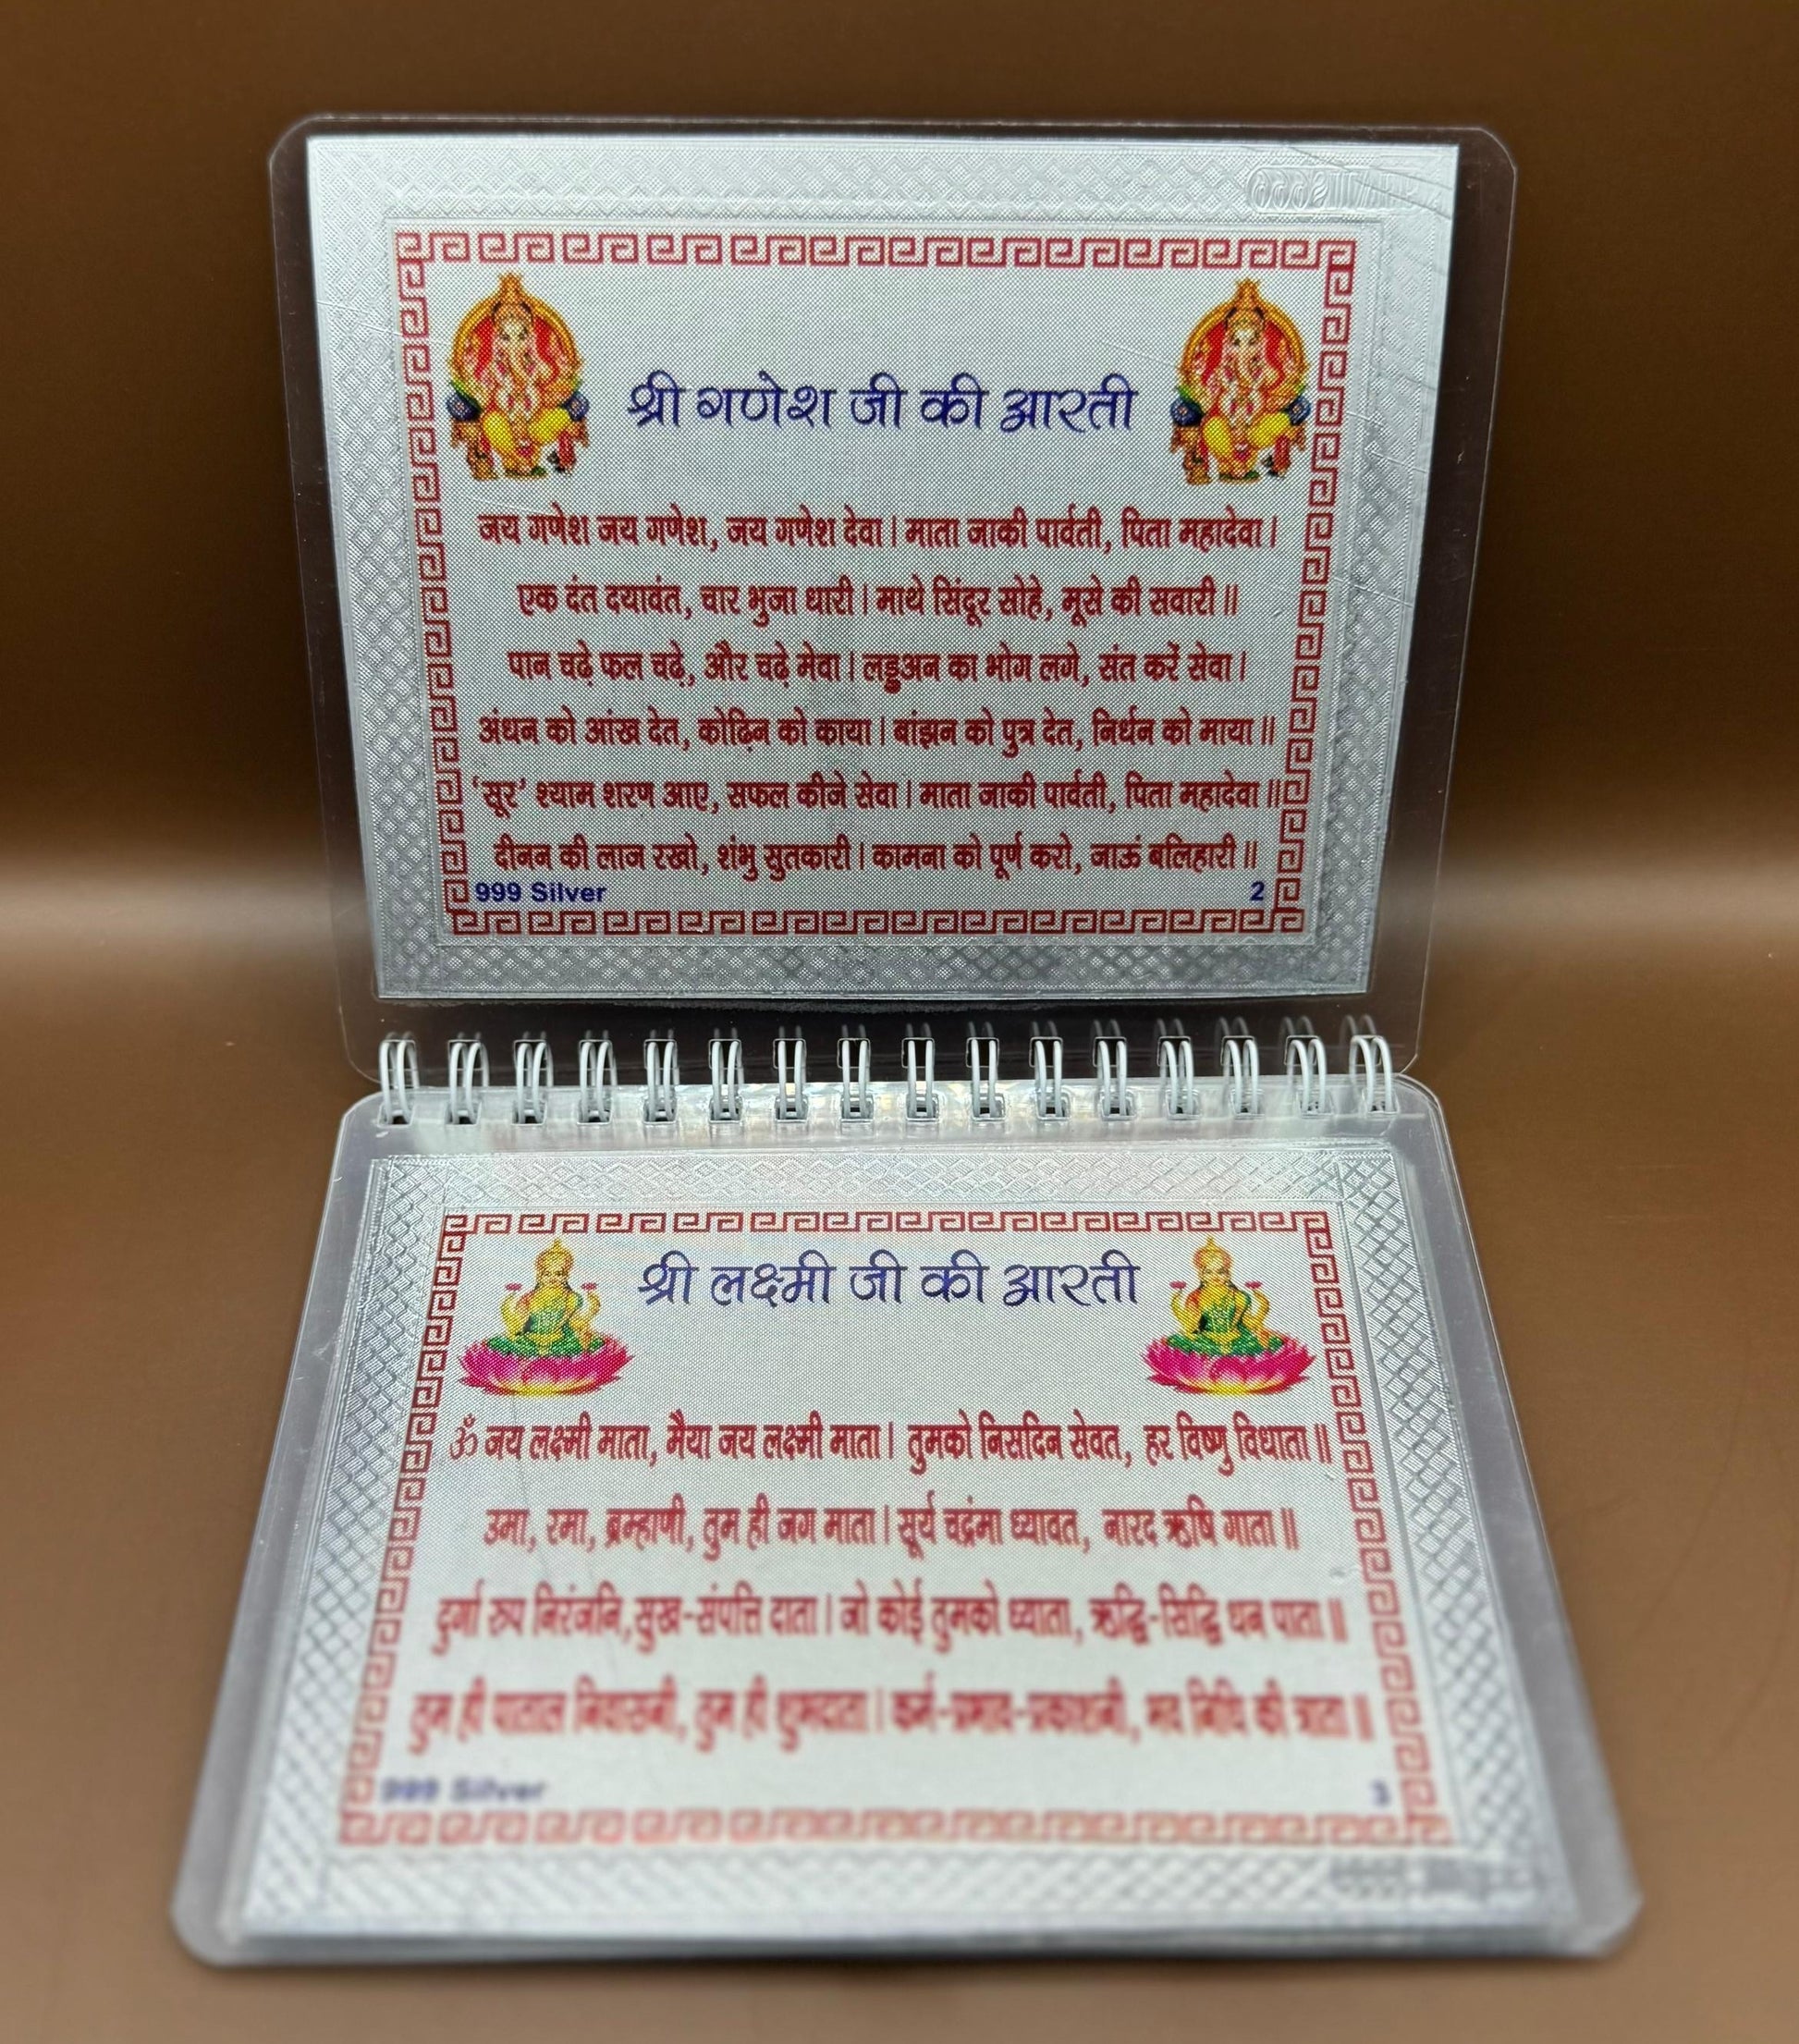 श्री गणेश जी की आरती
जय गणेश जय गणेश, जय गणेश देवा । माता जाकी पार्वती, पिता महादेवा ।
एक दंत दयावंत, चार भुजा धारी । माथे सिंदूर सोहे, मूसे की सवारी ॥
पान चढ़े फल चढ़े, और चढ़े मेवा । लड्डुअन का भोग लगे, संत करें सेवा ।
अंधन को आंख देत, कोढ़िन को काया । बांझन को पुत्र देत, निर्धन को माया ॥
‘सूर’ श्याम शरण आए, सफल कीजे सेवा । माता जाकी पार्वती, पिता महादेवा ॥
दीनन की लाज रखो, शंभु सुतकारी । कामना को पूर्ण करो, जाऊं बलिहारी ॥
999 Silver 2
श्री लक्ष्मी जी की आरती
ॐ जय लक्ष्मी माता, मैया जय लक्ष्मी माता । तुमको निसदिन सेवत, हर विष्णु विधाता ॥
उमा, रमा, ब्रम्हाणी, तुम ही जग माता । सूर्य चद्रंमा ध्यावत, नारद ऋषि गाता ॥
दुर्गा रुप निरंजनि, सुख-संपत्ति दाता । जो कोई तुमको ध्याता, ऋद्धि-सिद्धि धन पाता ॥
तुम ही पाताल निवासनी, तुम ही शुभदाता । कर्म-प्रभाव-प्रकाशनी, भव निधि की त्राता ॥
999 Silver 3